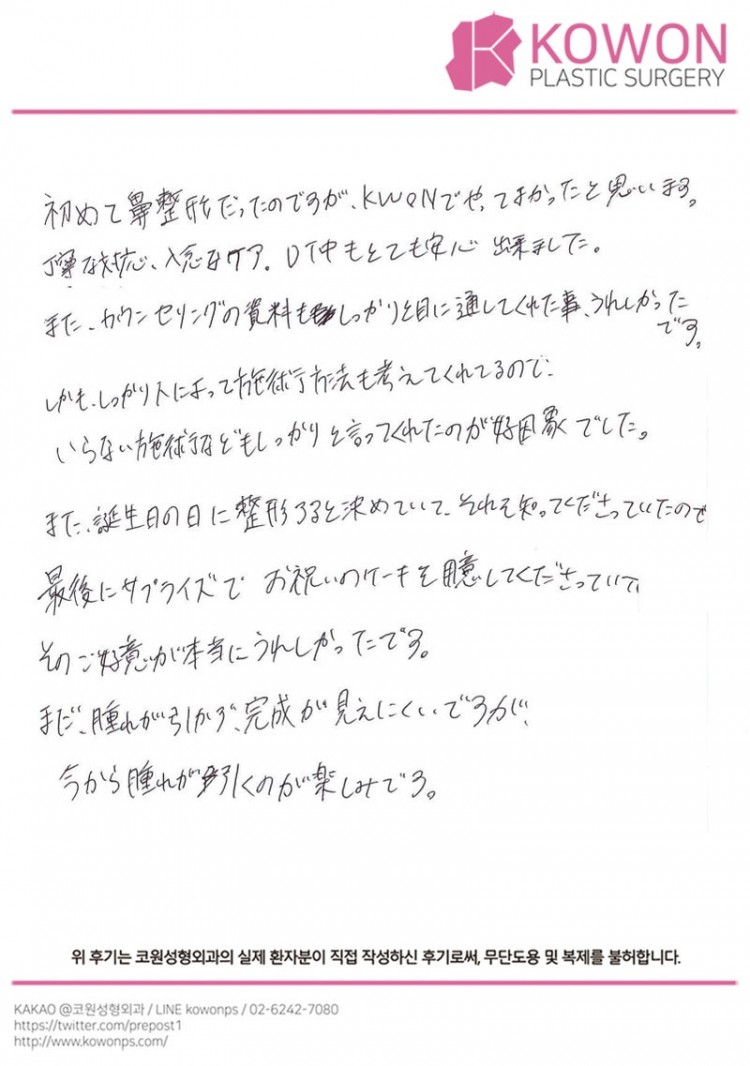 KOWON
PLASTIC SURGERY
初めて鼻整形だったのですが、KWONでやってよかったと思います。
丁寧な対応、入念なケア。DT中もとても安心 出来ました。
また、カウンセリングの資料もしっかりと目に通してくれた事、うれしかった
です。
しかも、しっかり人によって施術方法も考えてくれてるので、
いらない施術などもしっかりと言ってくれたのが好印象でした。
また、誕生日の日に整形すると決めていて、それを知ってくださっていたので
最後にサプライズで お祝いのケーキを してくださっていて、
そのご好意が本当にうれしかったです。
まだ、腫れが引かず、完成が見えにくいですが、
今から腫れが引くのが楽しみです。
위 후기는 코원성형외과의 실제 환자분이 직접 작성하신 후기로써, 무단도용 및 복제를 불허합니다.
KAKAO @코원성형외과 / LINE kowonps / 02-6242-7080
https://twitter.com/prepost1
http://www.kowonps.com/